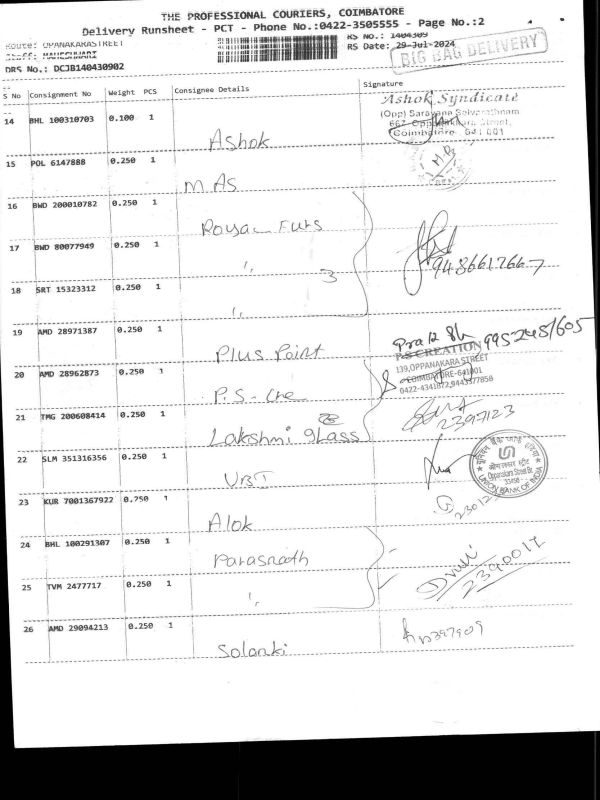 THE PROFESSIONAL COURIERS, COIMBATORE
Delivery Runsheet - PCT - Phone No.:0422-3505555 - Page No.:2
Route: OPANAKARASTREET
RS No.: 1404309
Staff: MAHESHWARI
RS Date: 29-Jul-2024
BIG BAG DELIVERY
DRS No.: DCJB140430902
S No Consignment No Weight PCS Consignee Details Signature
14 BHL 100310703 0.100 1
Ashok
Ashok Syndicate
(Opp) Saravana Selvarathnam
667, Oppanakkara Street,
Coimbatore - 641 001
15 POL 6147888 0.250 1
M.AS
16 BWD 200010782 0.250 1
Royal Furs
17 BWD 80077949 0.250 1
" 3
9486617667
18 SRT 15323312 0.250 1
"
19 AMD 28971387 0.250 1
Plus Point
995245/605
20 AMD 28962873 0.250 1
P.S-Cre
P.S CREATION
139,OPPANAKARA STREET
COIMBATORE-641001
0422-4341872,9443377858
21 TMG 200608414 0.250 1
Lakshmi glass
2397123
22 SLM 351316356 0.250 1
UBI
यूनियन बैंक ऑफ इंडिया
Oppanakara Street Br.
UNION BANK OF INDIA
23 KUR 7001367922 0.250 1
Alok
24 BHL 100291307 0.250 1
Parasnath
2390017
25 TVM 2477717 0.250 1
"
26 AMD 29094213 0.250 1
Solanki